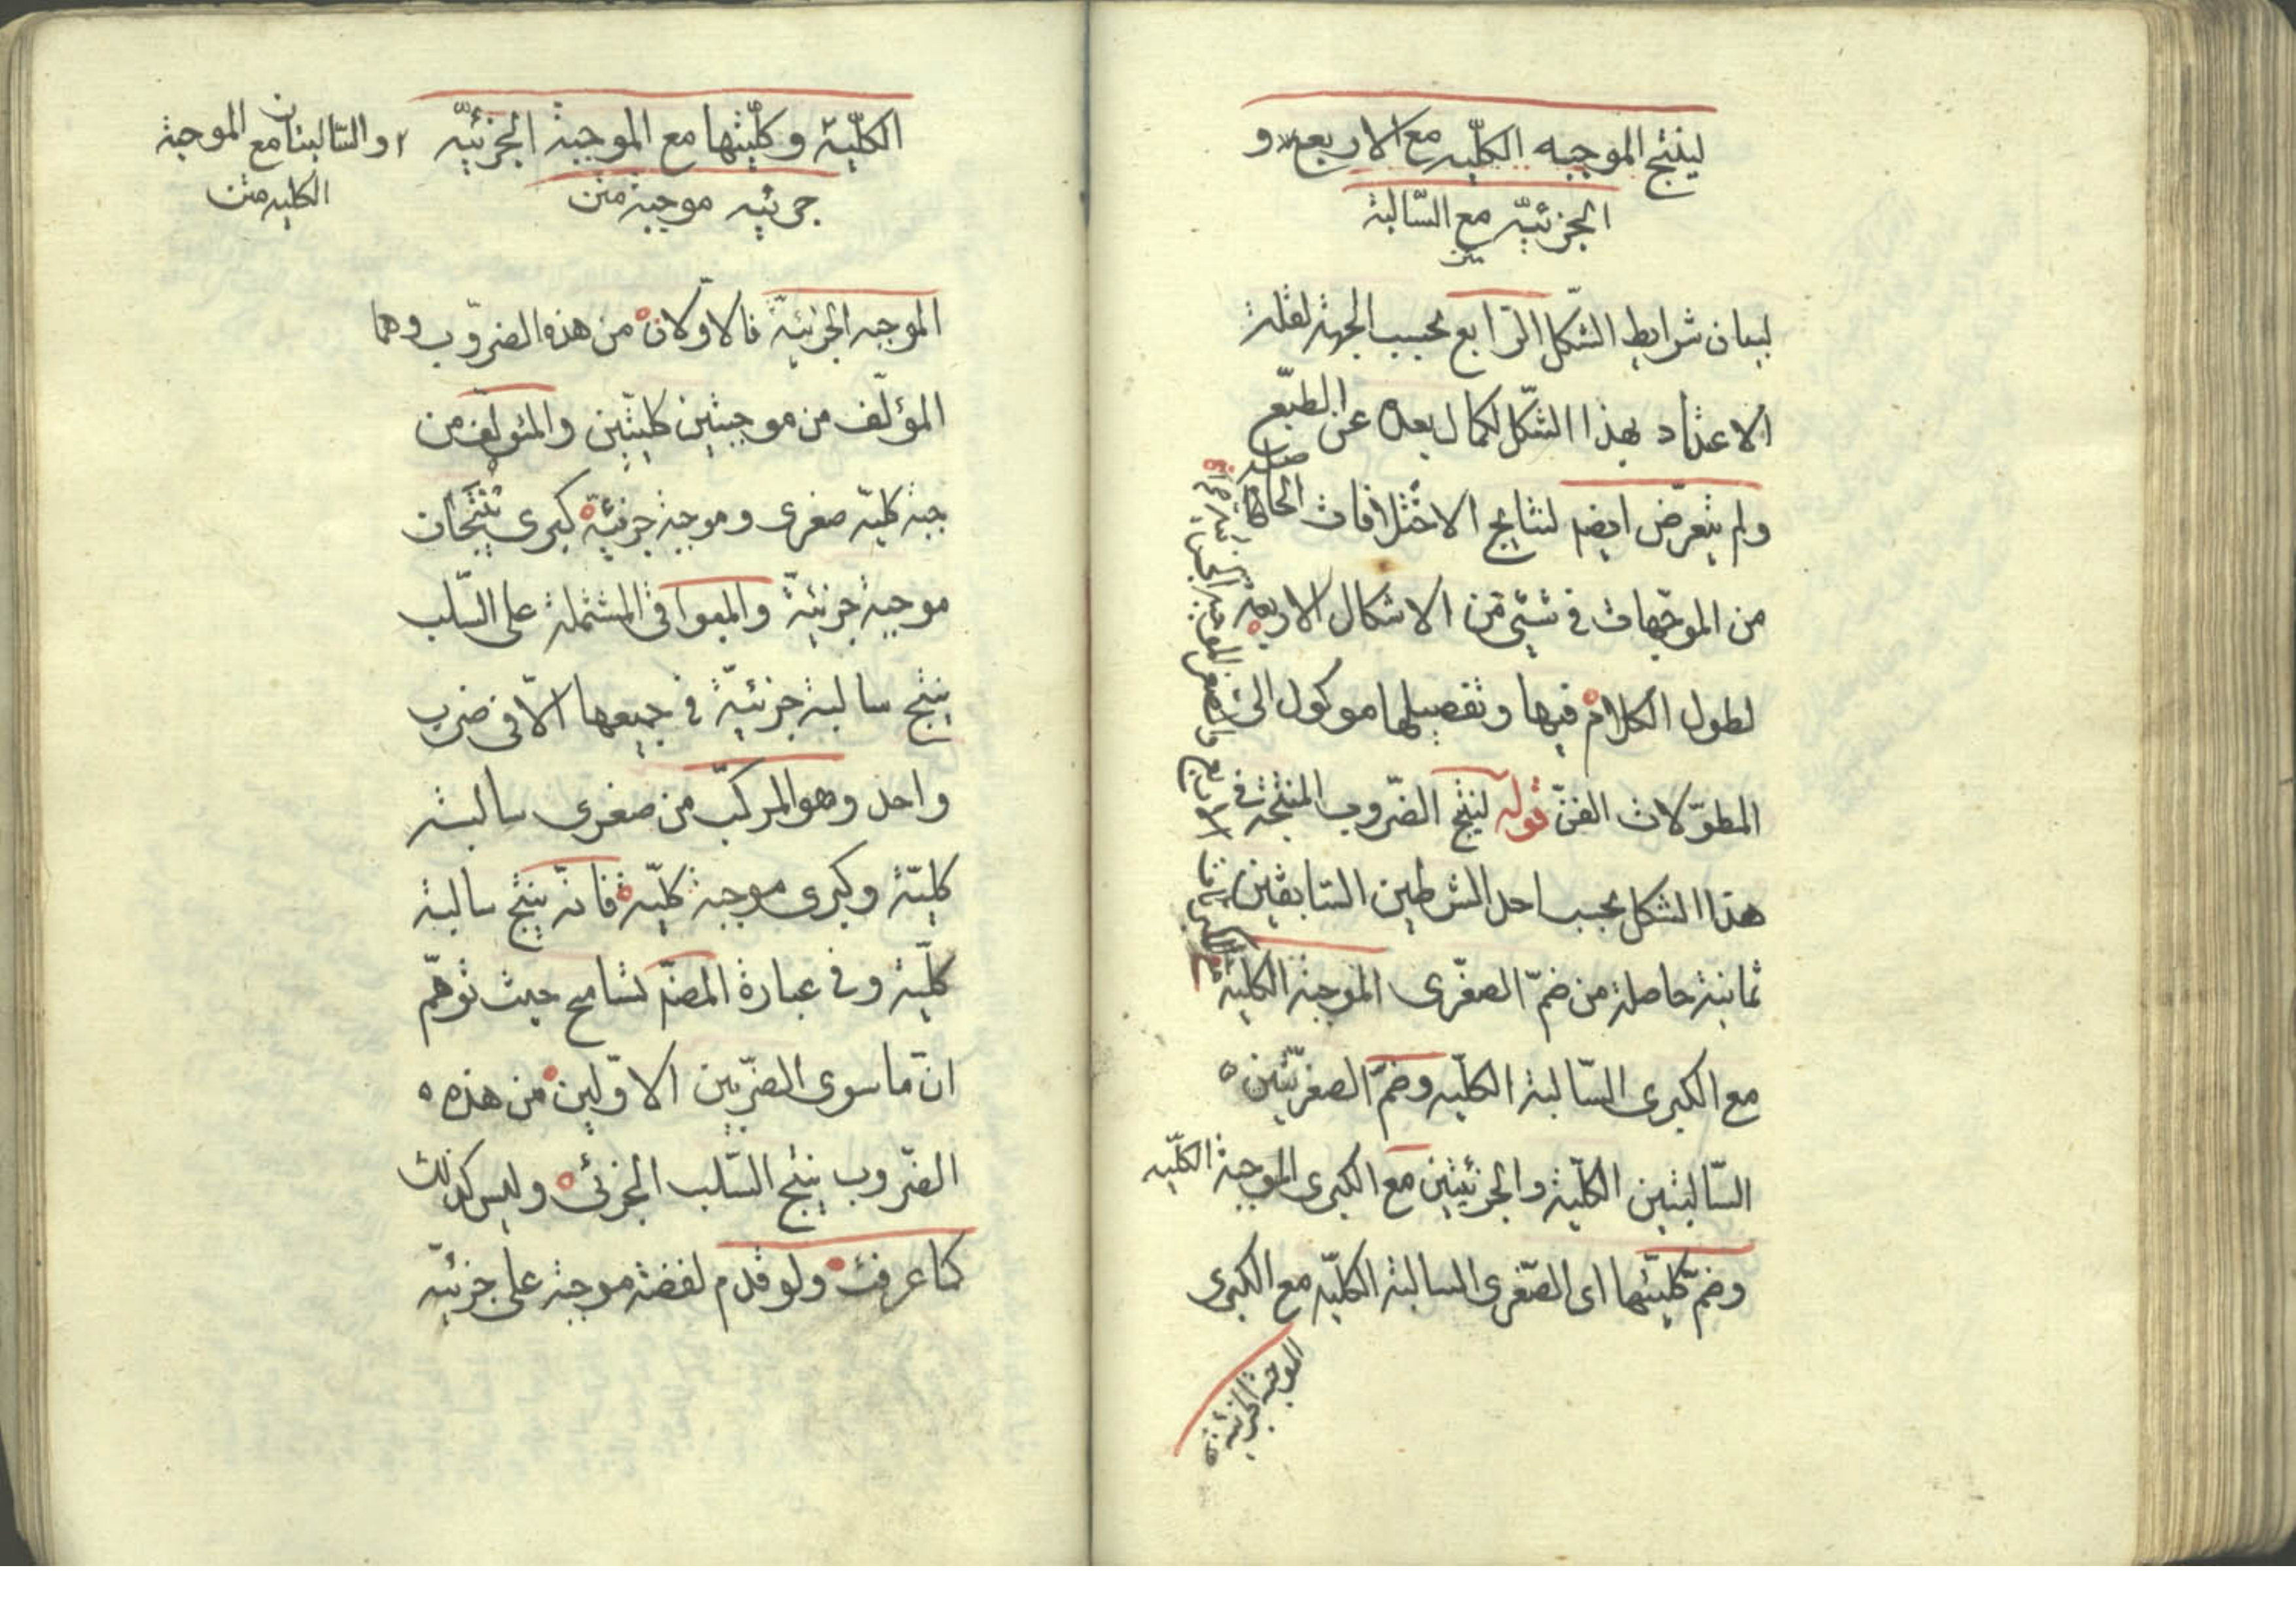 لينتج الموجبه الكلّيه مع الاربع و
الجزئيّه مع السّالبة
متن
لبيان شرايط الشكل الرّابع بحسب الجهة لقلة
الاعتداد بهذا الشكل لكمال بعده عن الطبّع
ولم يتعرّض ايضه لنتايج الاختلافات الحاصلة
من الموجّهات في شيئ من الاشكال الاربعة
لطول الكلام فيها وتفصيلها موكول الى
المطوّلات الفنّ قوله لينتج الضّروب المنتجة في
هذا الشكل بحسب احد الشرطين السّابقين
ثمانية حاصلة من ضمّ الصغرى الموجبة الكلية
مع الاربع والصغرى الموجبة الجزئية
مع الكبرى السّالبة الكلّيه وضمّ الصغريّين
السّالبتين الكلّية والجزئيتين مع الكبرى الموجبة الكلّيه
وضمّ كلّيتها اى الصّغرى السالبة الكلّيه مع الكبرى
الموجبة الجزئية فا
الكلّية وكلّيتها مع الموجبة الجزئيّه
جزئيه موجبة متن
والسّالبتان مع الموجبة
الكليه متن
الموجبه الجزئيّة فالاوّلان من هذه الضّروب وهما
المؤلّف من موجبتين كليّتين والمئولّف من
جبة كليّة صغرى وموجبة جزئيّة كبرى ينتجان
موجبة جزئيّة والبواقى المشتملة على السّلب
ينتج سالبة جزئيّة في جميعها الّا في ضرب
واحد وهو المركّب من صغرى سالبة
كليّة وكبرى موجبة كلّيه فانّه ينتج سالبة
كلّية وفى عبارة المصّه تسامح حيث توهّم
انّ ما سوى الضّربين الاوّلين من هذه
الضّروب ينتج السّلب الجزئى وليس كذلك
كما عرفت ولو قدم لفضة موجبة على جزئيّه